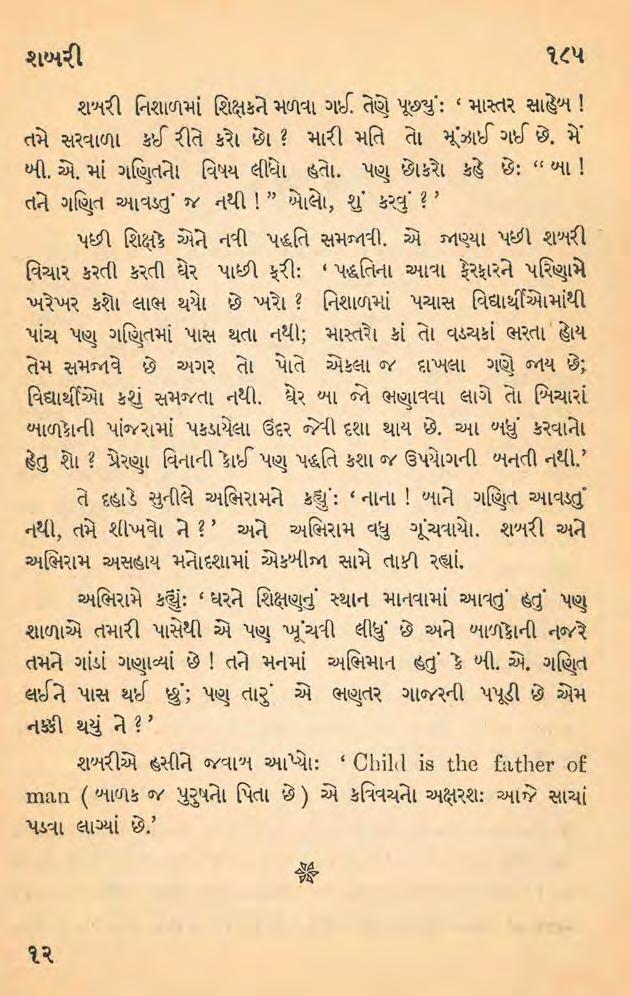 શબરી ૧૮૫
શબરી નિશાળમાં શિક્ષકને મળવા ગઈ. તેણે પૂછ્યું: ‘ માસ્તર સાહેબ !
તમે સરવાળા કઈ રીતે કરો છો ? મારી મતિ તો મૂંઝાઈ ગઈ છે. મેં
બી. એ. માં ગણિતનો વિષય લીધો હતો. પણ છોકરો કહે છે: “ બા !
તને ગણિત આવડતું જ નથી ! ” બોલો, શું કરવું ? ’
પછી શિક્ષકે એને નવી પદ્ધતિ સમજાવી. એ જાણ્યા પછી શબરી
વિચાર કરતી કરતી ઘેર પાછી ફરી: ‘ પદ્ધતિના આવા ફેરફારને પરિણામે
ખરેખર કશો લાભ થયો છે ખરો ? નિશાળમાં પચાસ વિદ્યાર્થીઓમાંથી
પાંચ પણ ગણિતમાં પાસ થતા નથી; માસ્તરો કાં તો વડચકાં ભરતા હોય
તેમ સમજાવે છે અગર તો પોતે એકલા જ દાખલા ગણે જાય છે;
વિદ્યાર્થીઓ કશું સમજતા નથી. ઘેર બા જો ભણાવવા લાગે તો બિચારાં
બાળકોની પાંજરામાં પકડાયેલા ઉંદર જેવી દશા થાય છે. આ બધું કરવાનો
હેતુ શો ? પ્રેરણા વિનાની કોઈ પણ પદ્ધતિ કશા જ ઉપયોગની બનતી નથી.’
તે દહાડે સુનીલે અભિરામને કહ્યું: ‘ નાના ! બાને ગણિત આવડતું
નથી, તમે શીખવો ને ? ’ અને અભિરામ વધુ ગૂંચવાયો. શબરી અને
અભિરામ અસહાય મનોદશામાં એકબીજા સામે તાકી રહ્યાં.
અભિરામે કહ્યું: ‘ ઘરને શિક્ષણનું સ્થાન માનવામાં આવતું હતું પણ
શાળાએ તમારી પાસેથી એ પણ ખૂંચવી લીધું છે અને બાળકોની નજરે
તમને ગાંડાં ગણાવ્યાં છે ! તને મનમાં અભિમાન હતું કે બી. એ. ગણિત
લઈને પાસ થઈ છું; પણ તારું એ ભણતર ગાજરની પપૂડી છે એમ
નક્કી થયું ને ? ’
શબરીએ હસીને જવાબ આપ્યો: ‘ Child is the father of
man ( બાળક જ પુરુષનો પિતા છે ) એ કવિવચનો અક્ષરશઃ આજે સાચાં
પડવા લાગ્યાં છે.’
૧૨